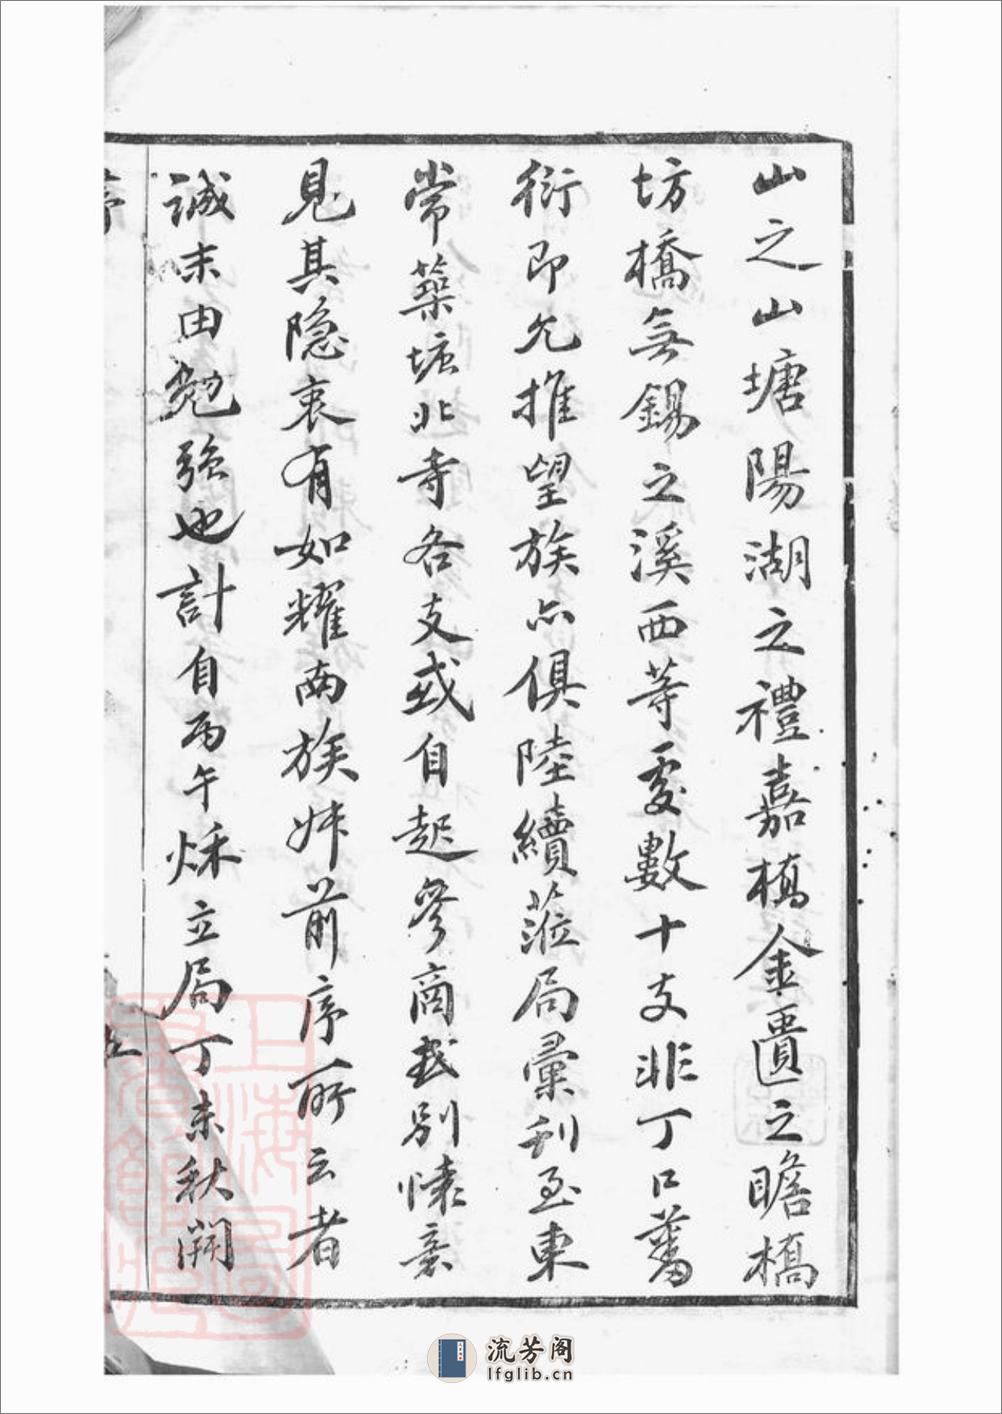 山之山塘陽湖之禮嘉橋金匱之瞻橋
坊橋無錫之溪西等處數十支非丁口蕃
衍即允推望族亦俱陸續蒞局彙刊至東
常葉塘北寺各支或自起參商或別懷意
見其隱衷有如耀南族姊前序所云者
誠未由勉強也計自丙午秌立局丁未秋開
序
五
上海圖書館藏
流芳阁
lfglib.cn